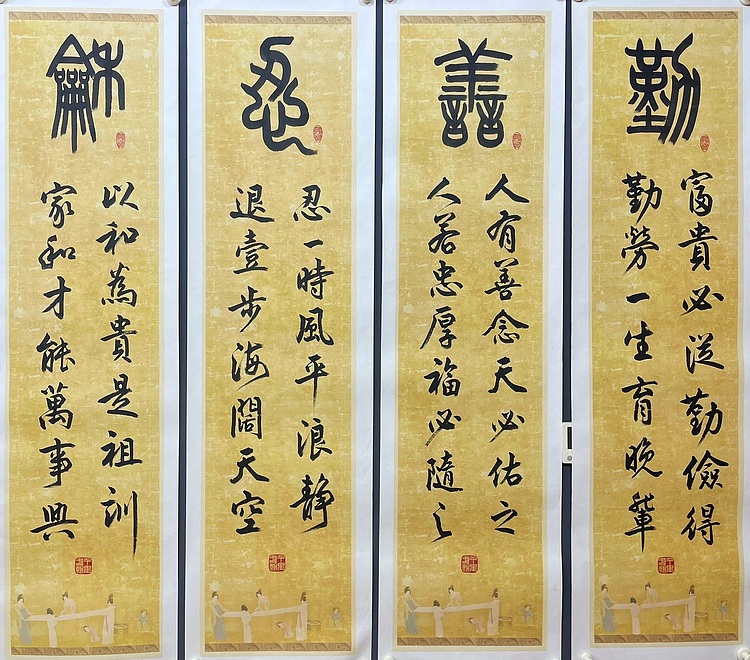 勤
富貴必從勤儉得
勤勞一生育晚輩
善
人有善念天必佑之
人若忠厚福必隨之
忍
忍一時風平浪静
退壹步海闊天空
龢
以和為貴是祖訓
家和才能萬事興